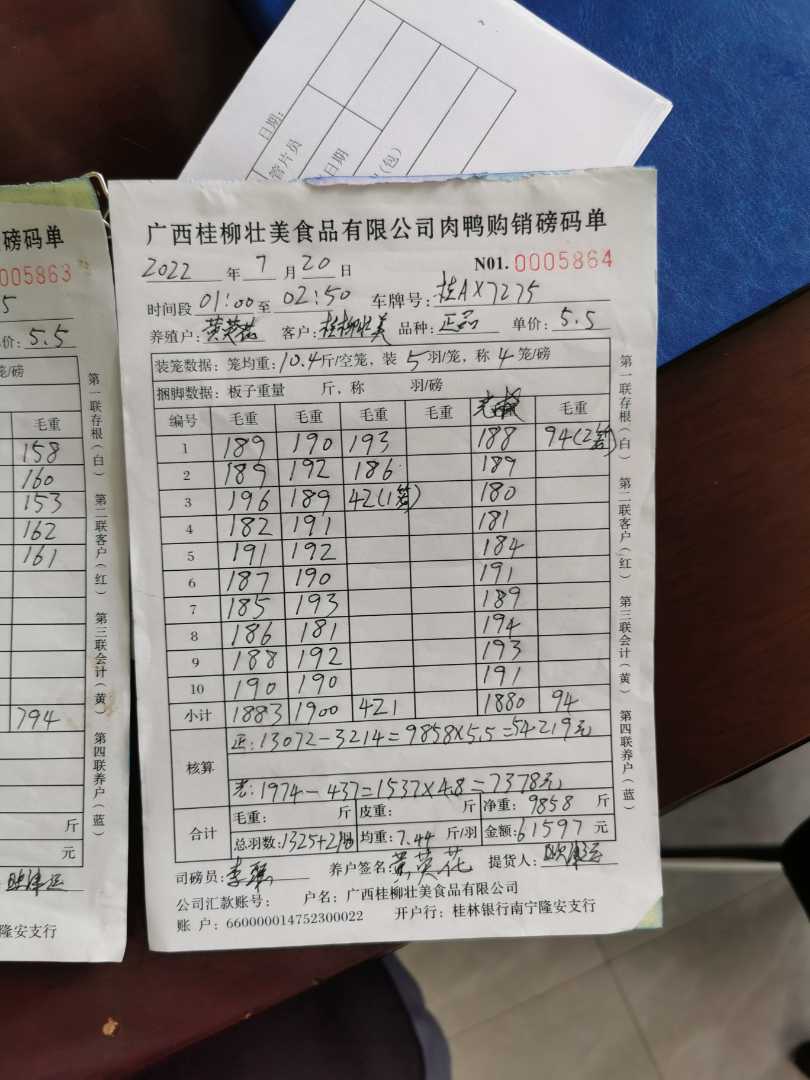 日期:
管片员
日期
(包)
磅码单
005863
5
价: 5.5
笼/磅
毛重
158
160
153
162
161
794
斤
元
隆安支行
第一联存根(白) 第二联客户(红) 第三联会计(黄) 第四联养户(蓝)
广西桂柳壮美食品有限公司肉鸭购销磅码单
2022 年 7 月 20 日 N01. 0005864
时间段 01:00 至 02:50 车牌号: 桂AX7275
养殖户: 黄英花 客户: 桂柳壮美 品种: 正品 单价: 5.5
装笼数据: 笼均重: 10.4 斤/空笼, 装 5 羽/笼, 称 4 笼/磅
捆脚数据: 板子重量 斤, 称 羽/磅
编号 毛重 毛重 毛重 毛重 毛重
1 189 190 193 188 94(2笼)
2 189 192 186 189
3 196 189 42(1笼) 180
4 182 191 181
5 191 192 184
6 187 190 191
7 185 193 189
8 186 181 194
9 188 192 193
10 190 190 191
小计 1883 1900 421 1880 94
核算 正: 13072-3214=9858×5.5=54219元
光: 1974-437=1537×4.8=7378元
合计 毛重: 斤 皮重: 斤 净重: 9858 斤
总羽数: 1325+2 均重: 7.44 斤/羽 金额: 61597 元
司磅员: 养户签名: 黄英花 提货人:
公司汇款账号: 户名: 广西桂柳壮美食品有限公司
账 户: 660000014752300022 开户行: 桂林银行南宁隆安支行
第一联存根(白) 第二联客户(红) 第三联会计(黄) 第四联养户(蓝)